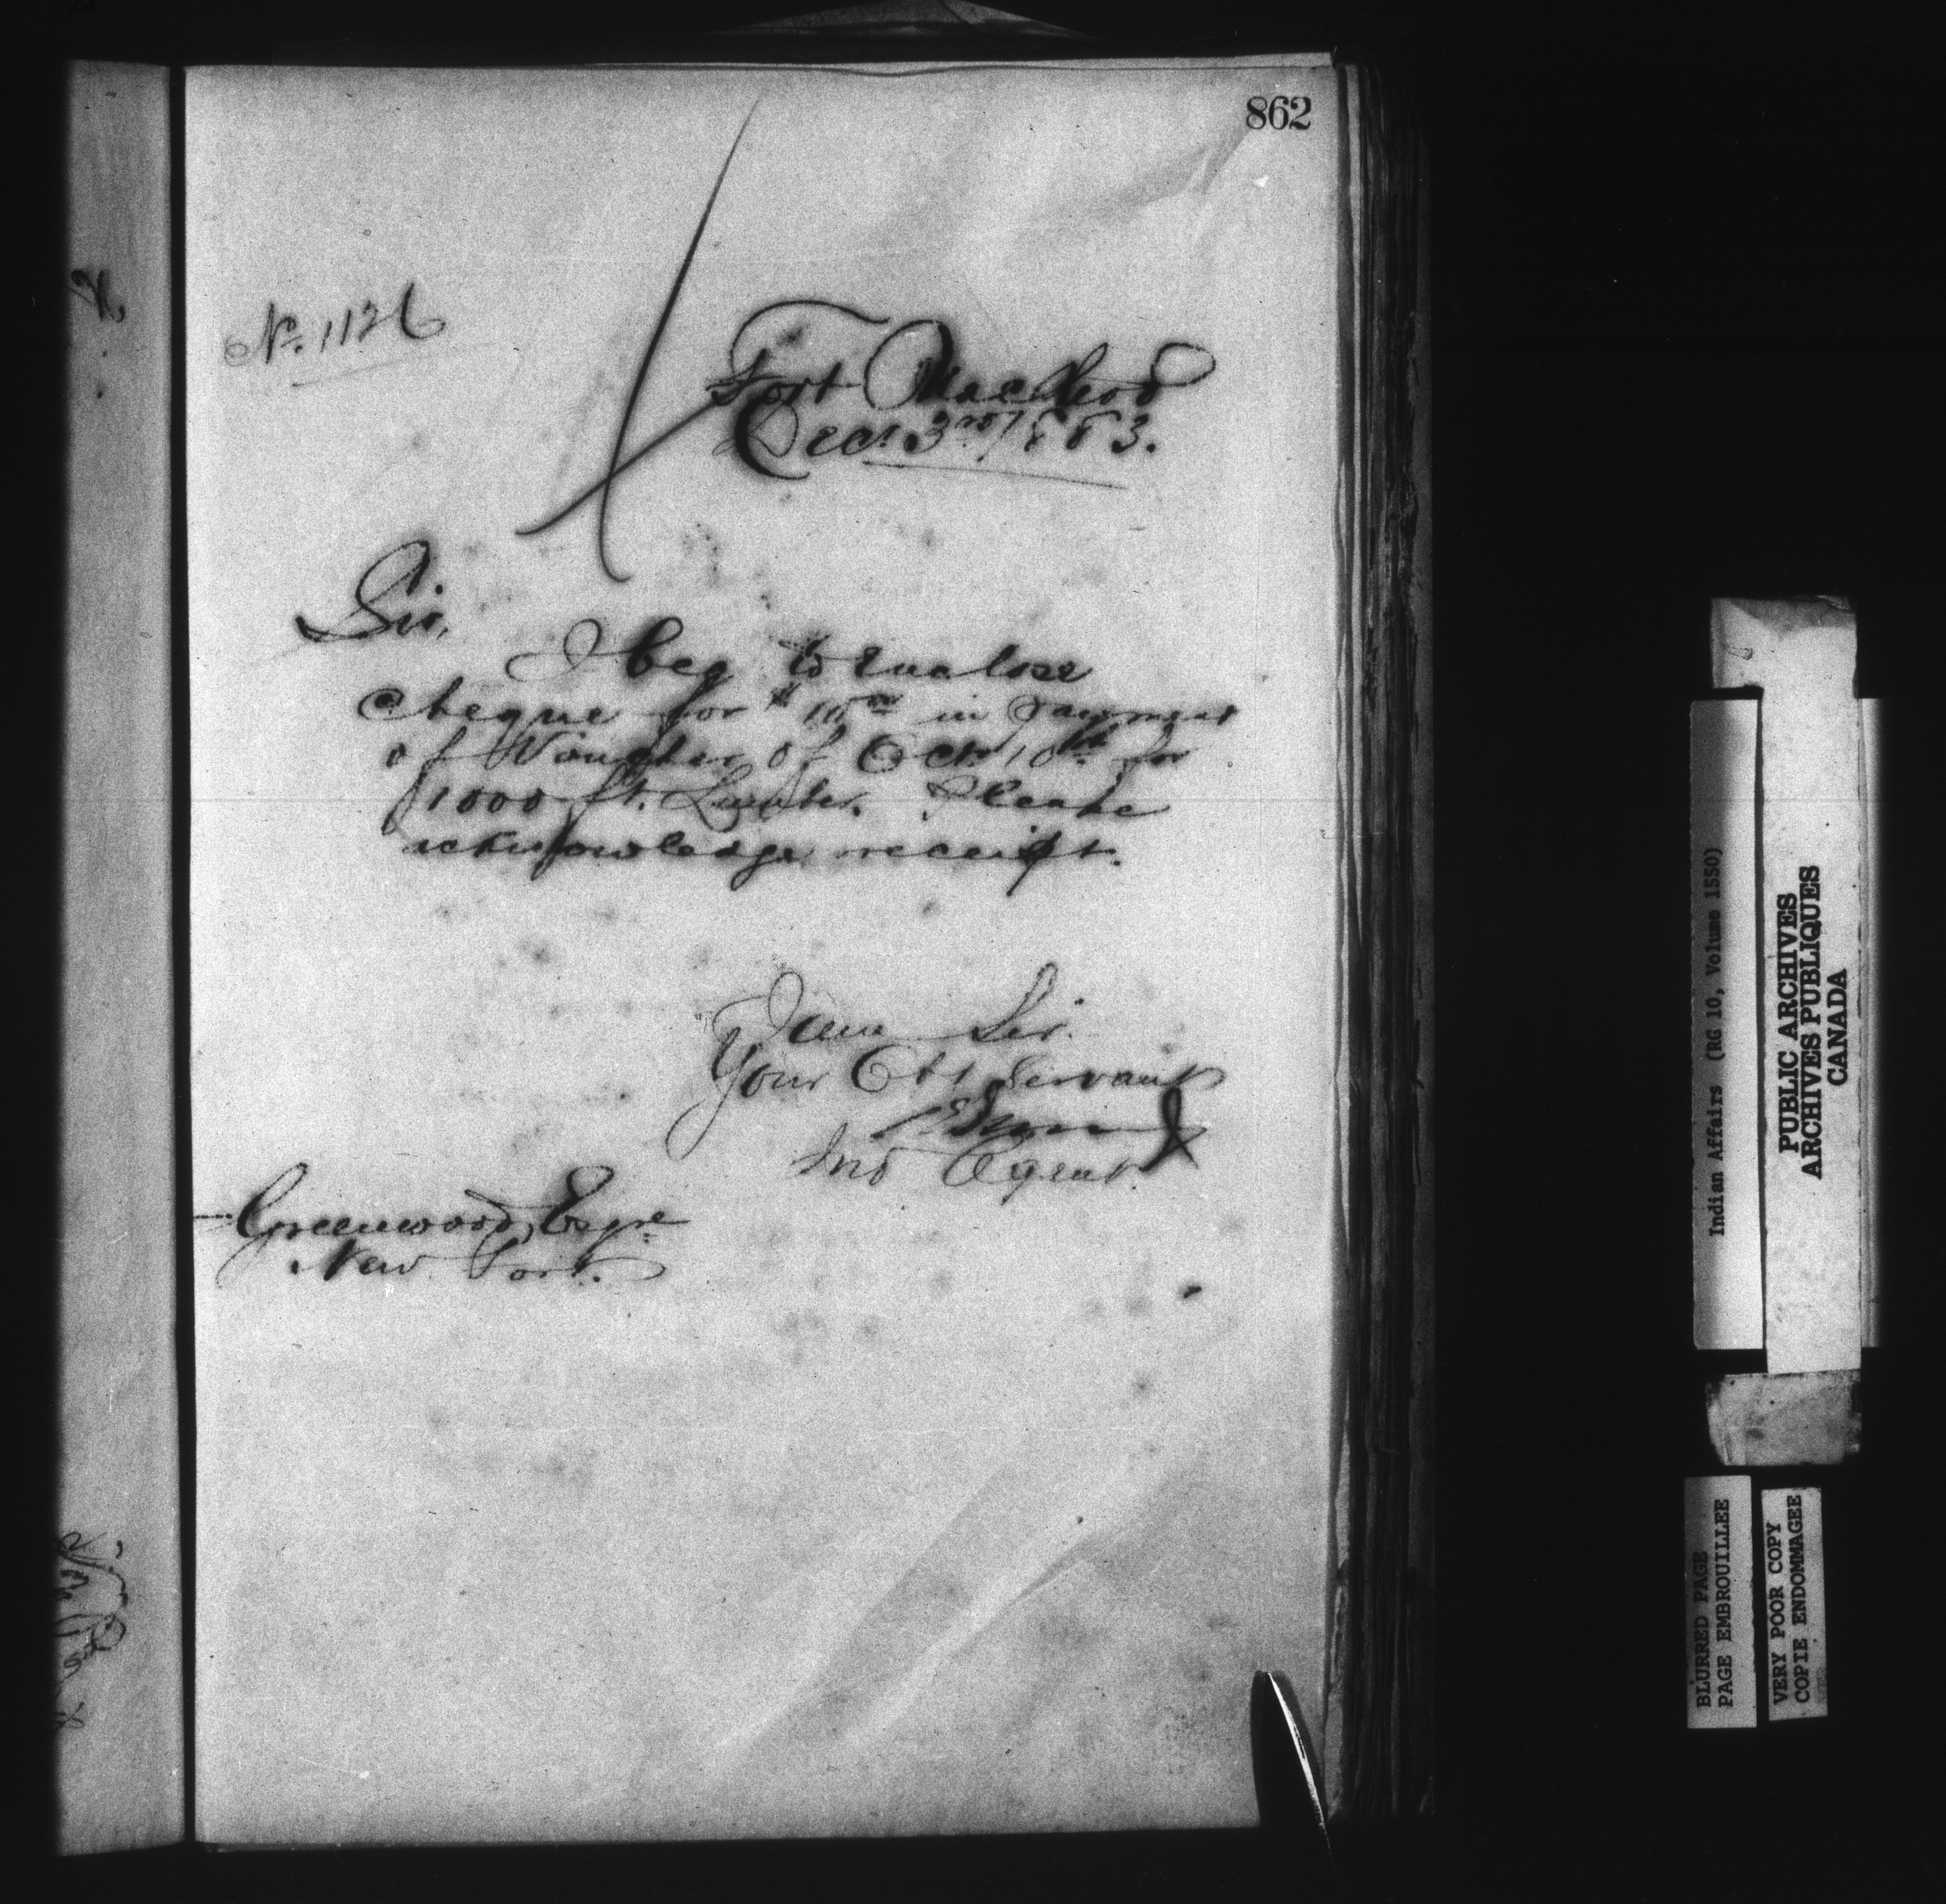 862
No. 1126
Fort Macleod
Decr 3rd 1883.
Sir,
I beg to enclose
cheque for $ in payment
of Voucher of Octr 10th for
1000 ft. Lumber. Please
acknowledge receipt.
I am Sir.
Your Obt Servant
Ind Agent.
Greenwood, Esqre
New Fort.
Indian Affairs (RG 10, Volume 1550)
PUBLIC ARCHIVES
ARCHIVES PUBLIQUES
CANADA
BLURRED PAGE
PAGE EMBROUILLEE
VERY POOR COPY
COPIE ENDOMMAGEE